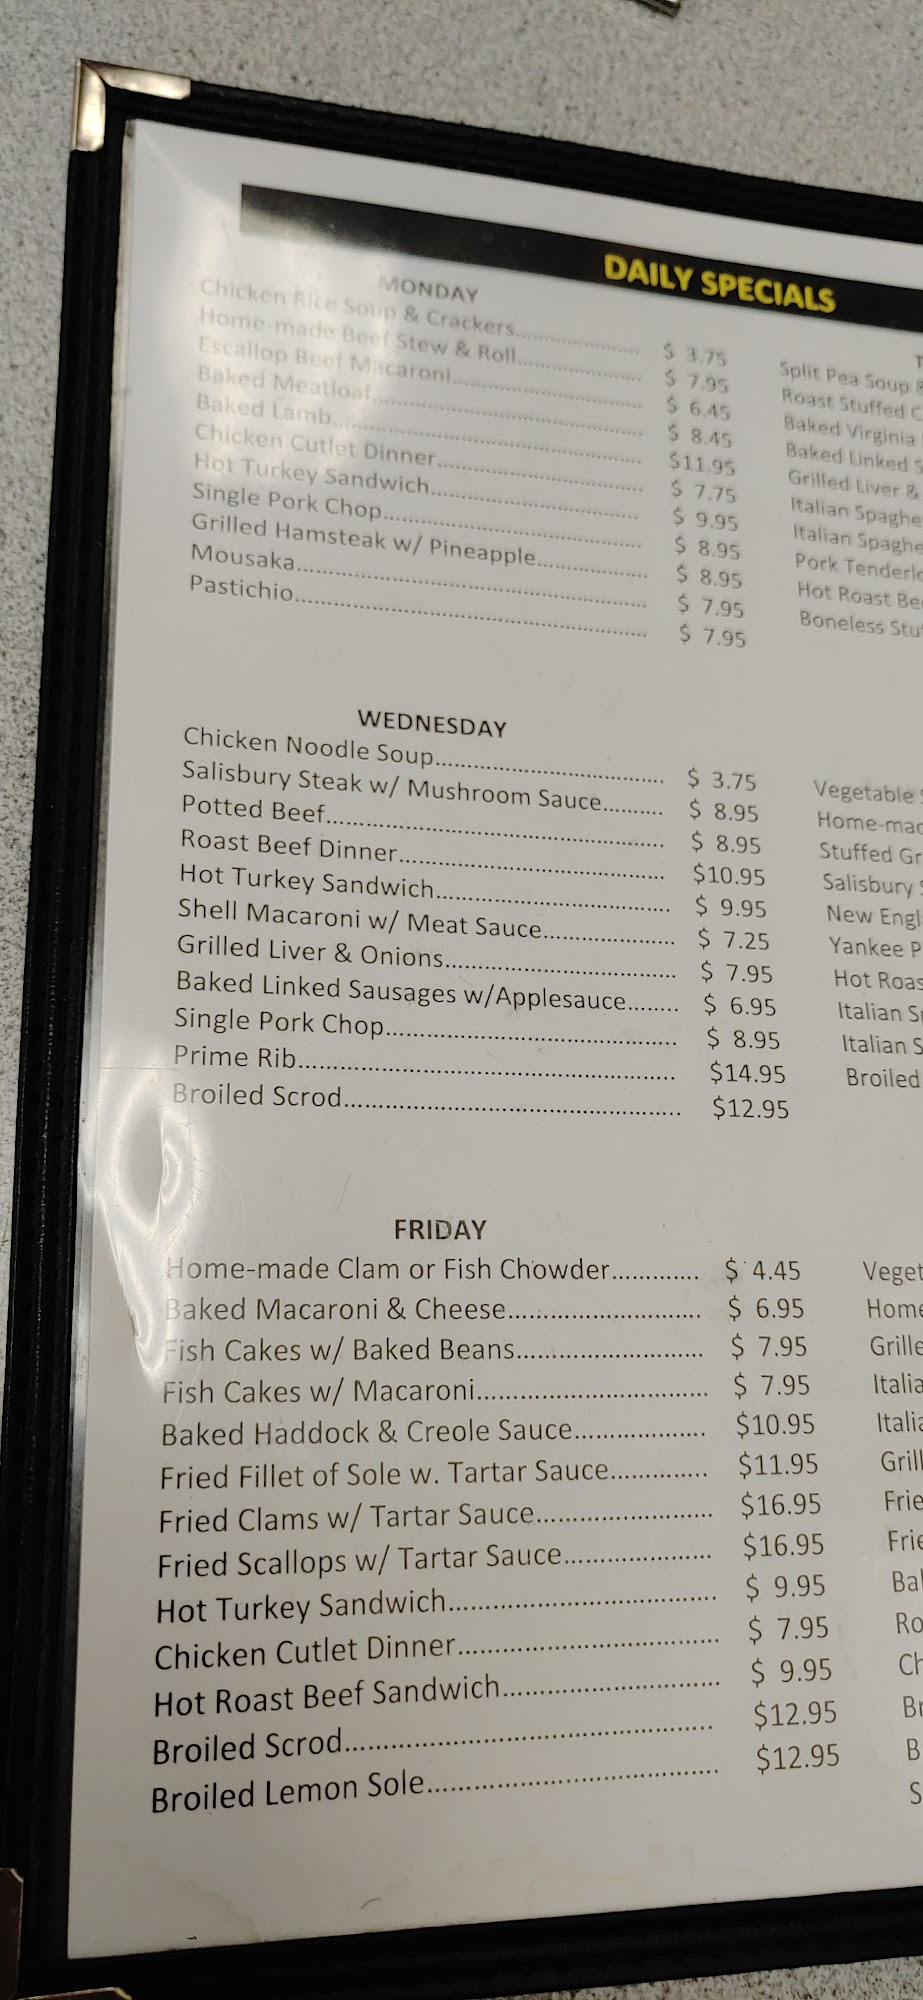 DAILY SPECIALS
MONDAY
Chicken Rice Soup & Crackers.......... $ 3.75
Home-made Beef Stew & Roll.......... $ 7.95
Escallop Beef Macaroni.......... $ 6.45
Baked Meatloaf.......... $ 8.45
Baked Lamb.......... $11.95
Chicken Cutlet Dinner.......... $ 7.75
Hot Turkey Sandwich.......... $ 9.95
Single Pork Chop.......... $ 8.95
Grilled Hamsteak w/ Pineapple.......... $ 8.95
Mousaka.......... $ 7.95
Pastichio.......... $ 7.95
Split Pea Soup &
Roast Stuffed
Baked Virginia
Baked Linked
Grilled Liver &
Italian
Italian
Pork
Hot Roast
Boneless
WEDNESDAY
Chicken Noodle Soup.......... $ 3.75
Salisbury Steak w/ Mushroom Sauce.......... $ 8.95
Potted Beef.......... $ 8.95
Roast Beef Dinner.......... $10.95
Hot Turkey Sandwich.......... $ 9.95
Shell Macaroni w/ Meat Sauce.......... $ 7.25
Grilled Liver & Onions.......... $ 7.95
Baked Linked Sausages w/Applesauce........ $ 6.95
Single Pork Chop.......... $ 8.95
Prime Rib.......... $14.95
Broiled Scrod.......... $12.95
Vegetable
Home-mad
Stuffed Gr
Salisbury
New Engl
Yankee P
Hot Roas
Italian
Italian S
Broiled
FRIDAY
Home-made Clam or Fish Chowder............. $ 4.45
Baked Macaroni & Cheese.......... $ 6.95
Fish Cakes w/ Baked Beans.......... $ 7.95
Fish Cakes w/ Macaroni.......... $ 7.95
Baked Haddock & Creole Sauce.......... $10.95
Fried Fillet of Sole w. Tartar Sauce.............. $11.95
Fried Clams w/ Tartar Sauce.......... $16.95
Fried Scallops w/ Tartar Sauce.......... $16.95
Hot Turkey Sandwich.......... $ 9.95
Chicken Cutlet Dinner.......... $ 7.95
Hot Roast Beef Sandwich.......... $ 9.95
Broiled Scrod.......... $12.95
Broiled Lemon Sole.......... $12.95
Veget
Home
Grille
Italia
Itali
Grill
Frie
Frie
Ba
Ro
Ch
Br
B
S